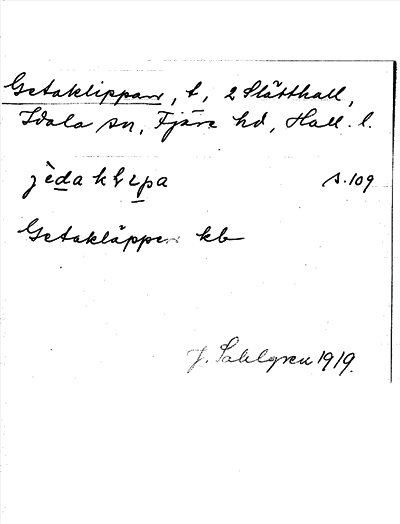 Getaklippan, t, 2 Slätthall,
Idala sn, Fjäre hd, Hall. l.
s. 109
Getakläppen kb
J. Sahlgren 1919.